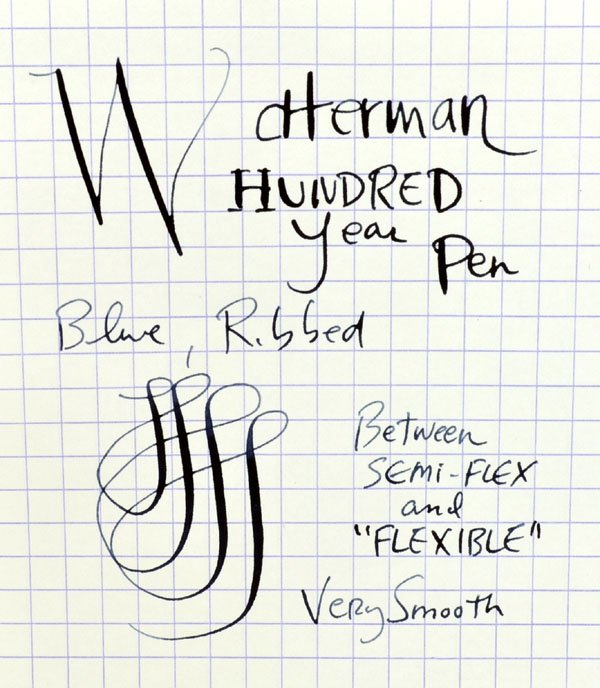 Waterman
HUNDRED
year
Pen
Blue, Ribbed
Between
SEMI-FLEX
and
"FLEXIBLE"
Very Smooth